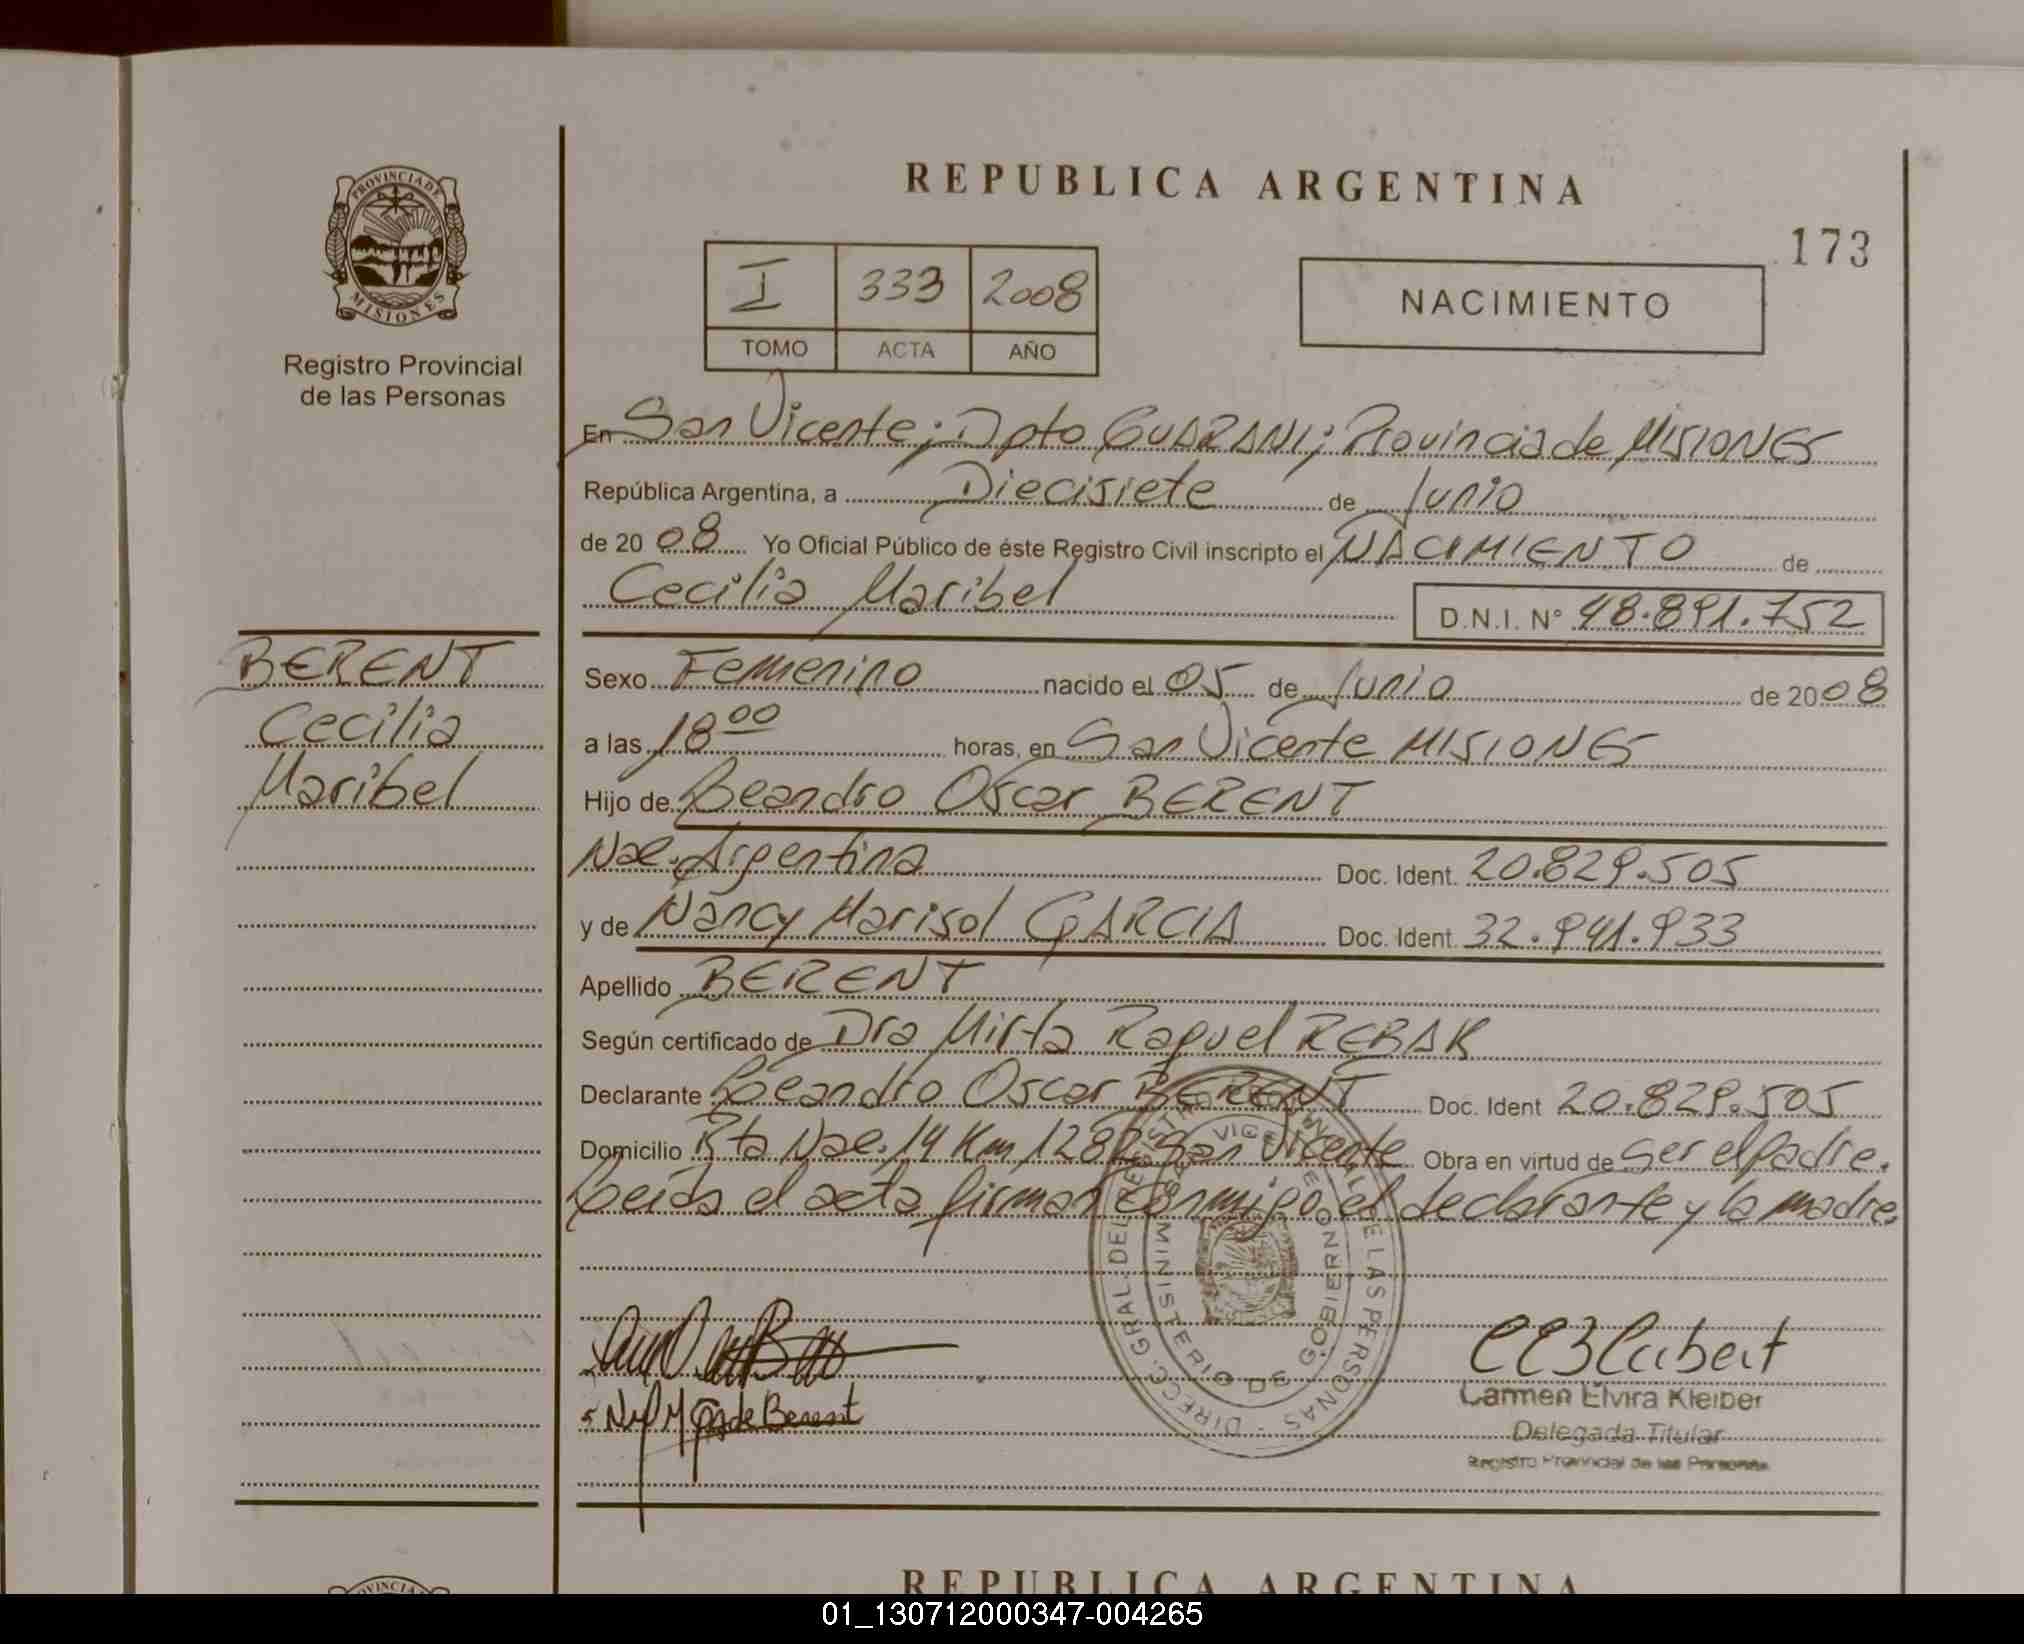 REPUBLICA ARGENTINA
173
PROVINCIA DE
MISIONES
Registro Provincial
de las Personas
I 333 2008
TOMO ACTA AÑO
NACIMIENTO
En San Vicente; Dpto GUARANI; Provincia de MISIONES
República Argentina, a Diecisiete de Junio
de 2008 Yo Oficial Público de éste Registro Civil inscripto el NACIMIENTO de
Cecilia Maribel D.N.I. Nº 48.891.752
BERENT
Cecilia
Maribel
Sexo Femenino nacido el 05 de Junio de 2008
a las 18 00 horas, en San Vicente MISIONES
Hijo de Leandro Oscar BERENT
Nac. Argentina Doc. Ident. 20.829.505
y de Nancy Marisol GARCIA Doc. Ident. 32.941.933
Apellido BERENT
Según certificado de Dra Mirta Raquel REBAK
Declarante Leandro Oscar BERENT Doc. Ident 20.829.505
Domicilio Rta Nac. 14 Km 1282 San Vicente Obra en virtud de ser el padre.
Leida el acta firman conmigo el declarante y la madre.
DIRECC. GRAL. DEL REGISTRO DE LAS PERSONAS
MINISTERIO DE GOBIERNO
de Berent
Carmen Elvira Kleiber
Delegada Titular
Registro Provincial de las Personas
PROVINCIA
REPUBLICA ARGENTINA
01_130712000347-004265